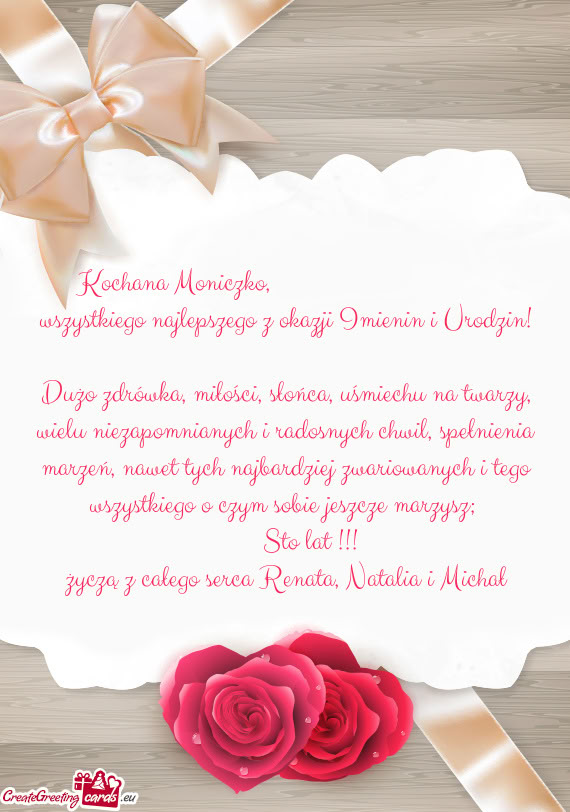 Kochana Moniczko,
wszystkiego najlepszego z okazji Imienin i Urodzin!
Dużo zdrówka, miłości, słońca, uśmiechu na twarzy,
wielu niezapomnianych i radosnych chwil, spełnienia
marzeń, nawet tych najbardziej zwariowanych i tego
wszystkiego o czym sobie jeszcze marzysz;
Sto lat !!!
życzą z całego serca Renata, Natalia i Michał
CreateGreeting cards .eu